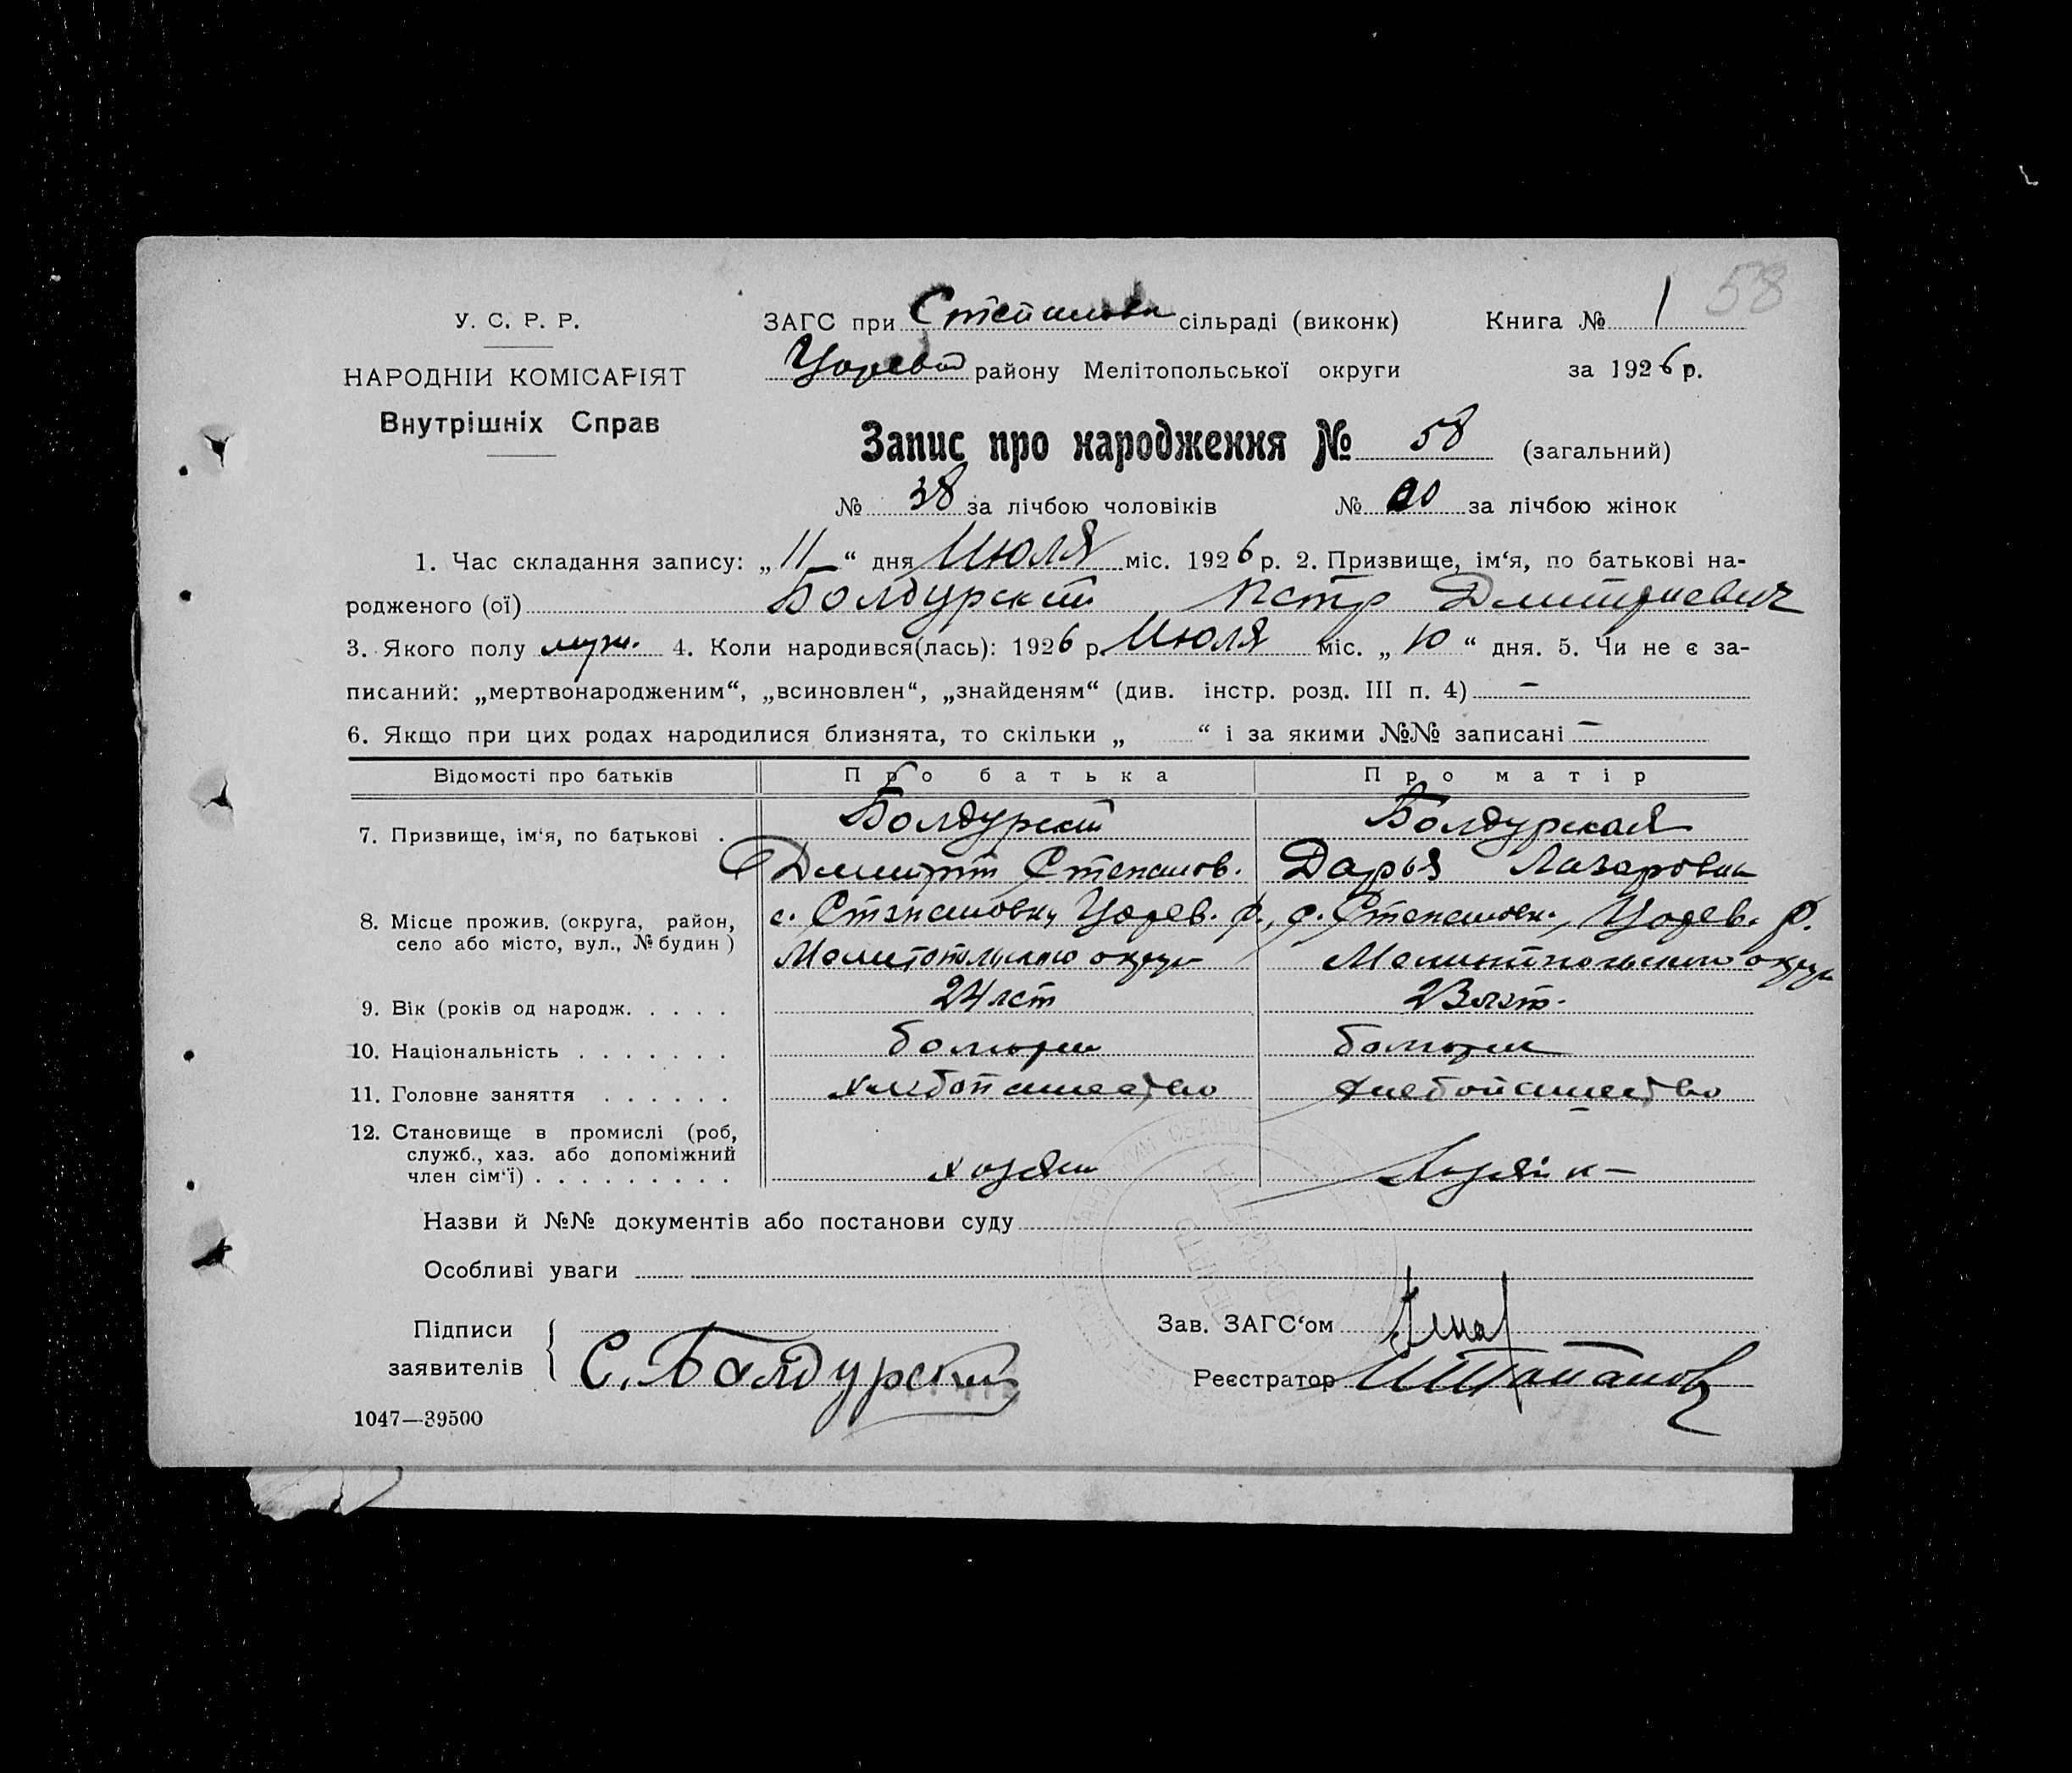 58
У. С. Р. Р.
НАРОДНІЙ КОМІСАРІЯТ
Внутрішніх Справ
ЗАГС при Степанови сільраді (виконк) Книга № 1
Цорев району Мелітопольської округи за 1926 р.
Запис про народження № 58 (загальний)
№ 38 за лічбою чоловіків № 20 за лічбою жінок
1. Час складання запису: „ 11 “ дня Июля міс. 1926 р. 2. Призвище, ім‘я, по батькові на-
родженого (ої) Болдурский Петр Дмитриевич
3. Якого полу муж. 4. Коли народився(лась): 1926 р. Июля міс. „ 10 “ дня. 5. Чи не є за-
писаний: „мертвонародженим“, „всиновлен“, „знайденям“ (див. інстр. розд. III п. 4) –
6. Якщо при цих родах народилися близнята, то скільки „ “ і за якими №№ записані –
Відомості про батьків Про батька Про матір
7. Призвище, ім‘я, по батькові . Болдурский Болдурская
Дмитрий Степанов. Дарья Лазаровна
8. Місце прожив. (округа, район, с. Степановки, Цорев. р., с. Степановк. Цорев. р.
село або місто, вул., № будин )
Мелитопольского округа Мелитопольского округа
9. Вік (років од народж. . . . . 24 лет 23 лет.
10. Національність . . . . . . . болгарин болгарк
11. Головне заняття . . . . . . хлебопашество хлебопашество
12. Становище в промислі (роб,
служб., хаз. або допоміжний
член сім‘ї) . . . . . . . . . хозяин Хозяйк–
Назви й №№ документів або постанови суду
Особливі уваги
Підписи
заявителів С. Балдурский
Зав. ЗАГС‘ом
Реєстратор
1047—39500